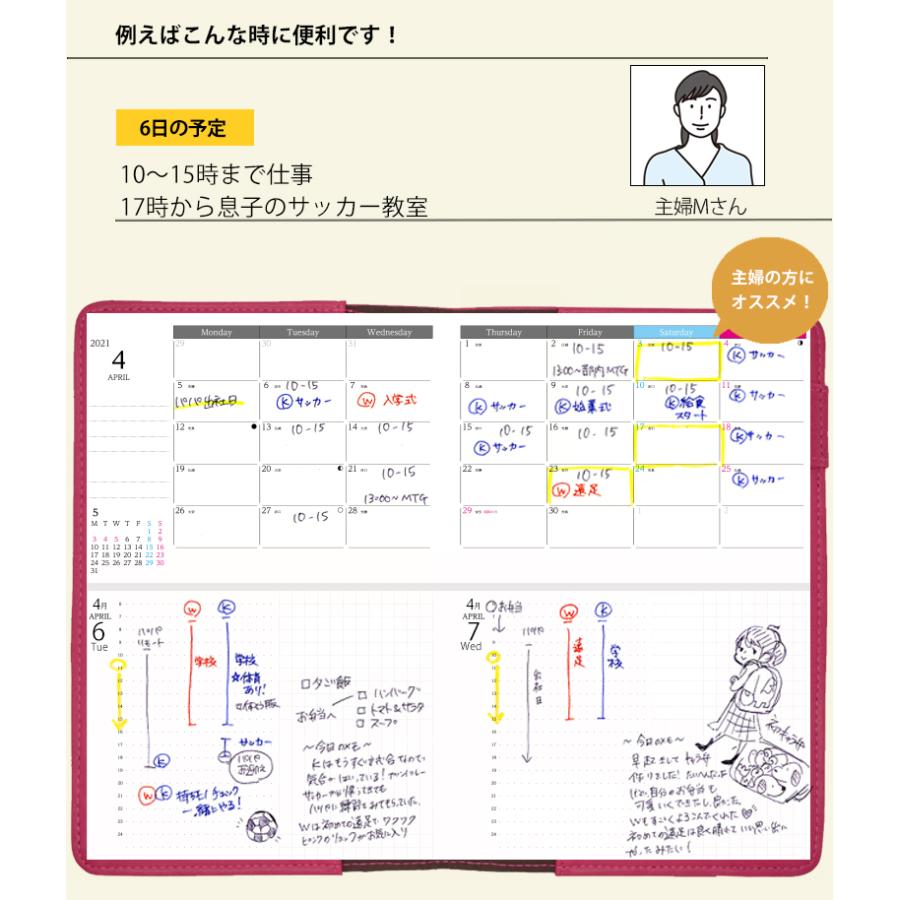 例えばこんな時に便利です！
6日の予定
10〜15時まで仕事
17時から息子のサッカー教室
主婦Mさん
主婦の方に
オススメ！
2021
4
APRIL
Monday Tuesday Wednesday Thursday Friday Saturday
29 30 31 1 2 3 4
10-15 10-15
13:00〜 MTG
Ⓚ サッカー
5 6 7 8 9 10 11
パパ出社日
10-15
Ⓚ サッカー
Ⓦ 入学式
Ⓚ サッカー
10-15
Ⓚ 始業式
10-15
Ⓚ 給食
スタート
Ⓚ サッカー
12 13 14 15 16 17 18
10-15 10-15 10-15 10-15
Ⓚ サッカー
Ⓚ サッカー
19 20 21 22 23 24 25
10-15
13:00〜MTG
10-15
Ⓦ 遠足
Ⓚ サッカー
26 27 28 29 30
10-15
5
M T W T F S S
1 2
3 4 5 6 7 8 9
10 11 12 13 14 15 16
17 18 19 20 21 22 23
24 25 26 27 28 29 30
31
4月
APRIL
6
Tue
パパ
リモート
Ⓦ Ⓚ
学校
学校
☆体育
あり!
サッカー
パパ
お迎え
Ⓚ
ⓌⓀ 持ちモノチェック
一緒にやる!
□夕ご飯
お弁当へ
□ ハンバーグ
□ トマト&サラダ
□ スープ
〜今日のメモ〜
Ⓚはもうすぐ試合なので
気合がはいっている!
サッカーから帰ってきても
Wは初めての遠足でワクワク
ピンクのリュックがお気に入り
4月
APRIL
7
Wed
お弁当
パパ
出社日
Ⓦ Ⓚ
遠足
学校
〜今日のメモ〜
早起きして キャラ弁
作りました!
自分のお弁当も
可愛くできたし、良かった
Wもすごくよろこんでくれた
初めての遠足は良く晴れて いい思い出に
なったみたい!